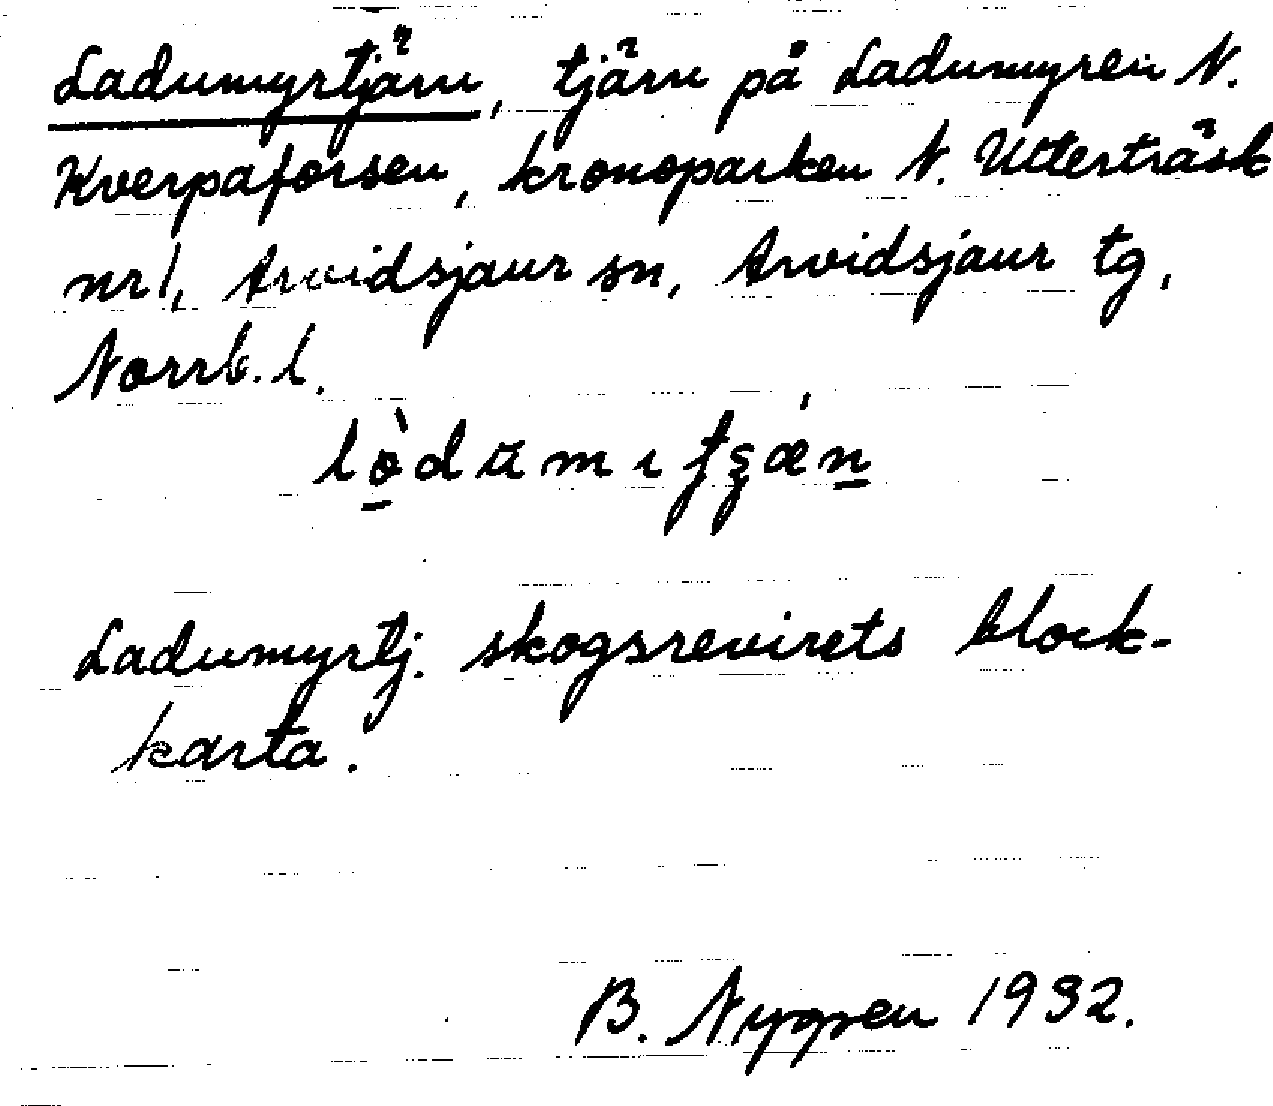 Ladumyrtjärn, tjärn på Ladumyren N.
Kverpaforsen, kronoparken N. Utterträsk
nr 1, Arvidsjaur sn, Arvidsjaur tg,
Norrb. l.
Ladumyrtj. skogsrevirets block-
karta.
B. Nygren 1932.